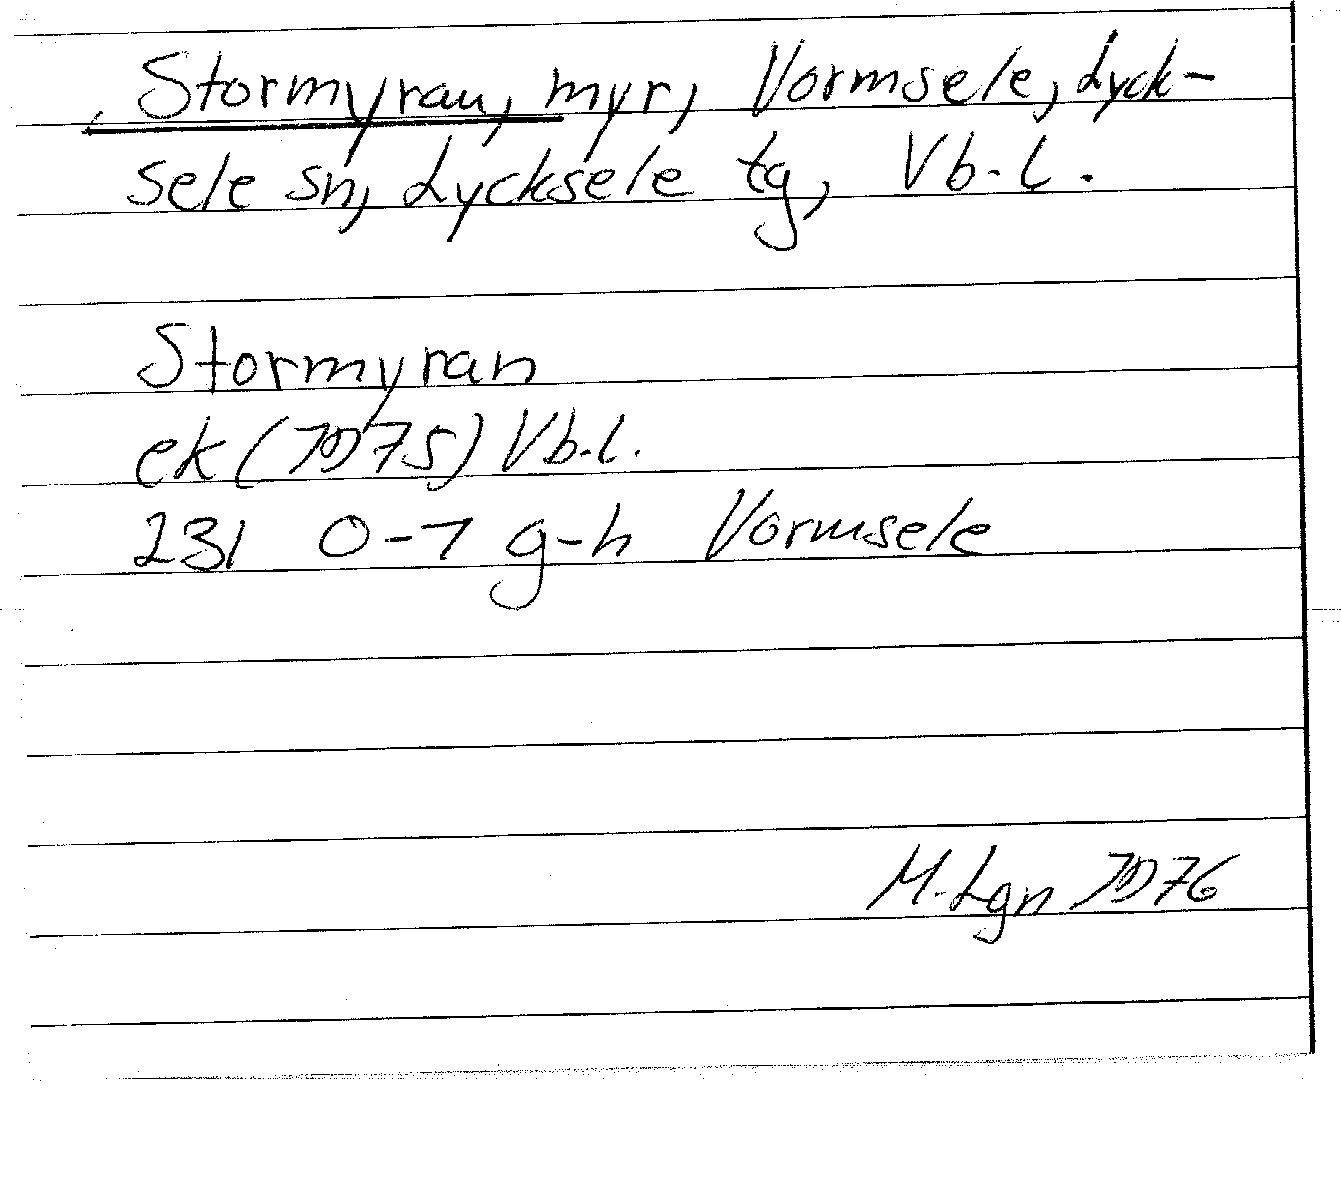 Stormyran, myr, Vormsele, Lyck-
sele sn, Lycksele tg, Vb.l.
Stormyran
ek (1975) Vb.l.
231 0-1 g-h Vormsele
M. Lgn 1976